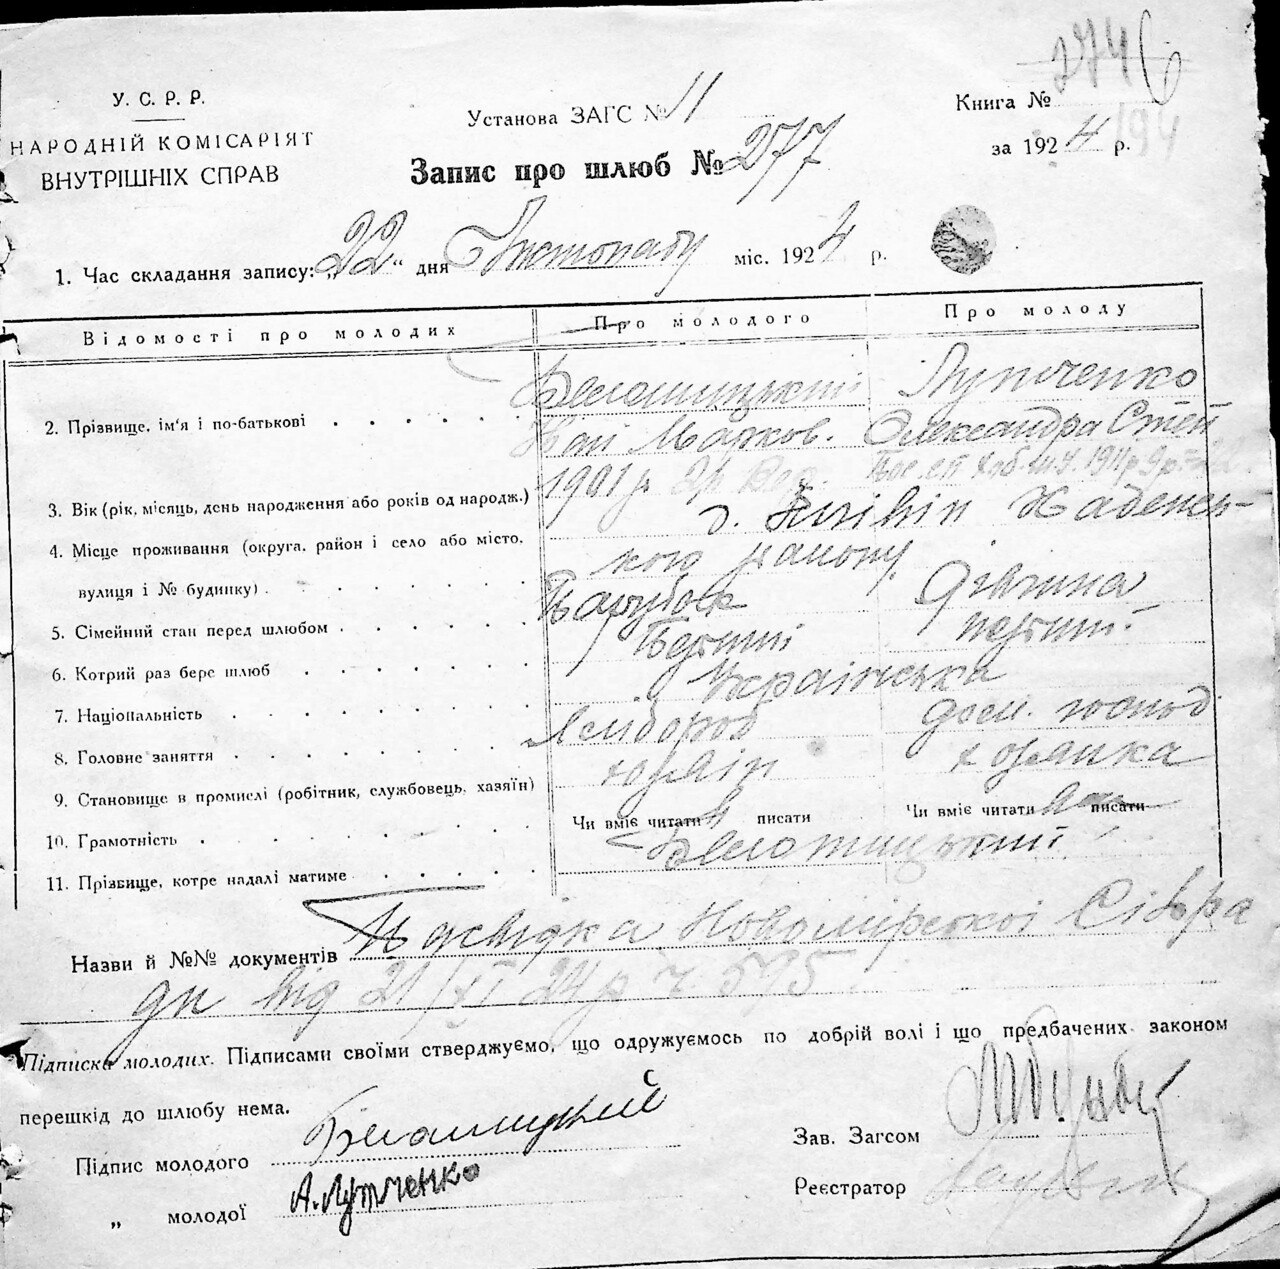 2746
194
У. С. Р. Р.
НАРОДНІЙ КОМІСАРІЯТ
ВНУТРІШНІХ СПРАВ
Установа ЗАГС № 11
Запис про шлюб № 277
Книга №
за 1924 р.
1. Час складання запису: „22“ дня Листопаду міс. 1924 р.
Відомості про молодих
Про молодого
Про молоду
2. Прізвище, ім'я і по-батькові
Марков.
Лутченко
Олександра Степ
3. Вік (рік, місяць, день народження або років од народж.)
1901 р.
4. Місце проживання (округа, район і село або місто,
вулиця і № будинку)
кого району
5. Сімейний стан перед шлюбом
Парубок
Дівчина
6. Котрий раз бере шлюб
Перший
перший.
7. Національність
Українська
8. Головне заняття
Хлібороб
дом. господ
9. Становище в промислі (робітник, службовець, хазяїн)
10. Грамотність
Чи вміє читати писати
Чи вміє читати писати
11. Прізбище, котре надалі матиме
Назви й №№ документів Посвідка Новомірської Сільра
ди від 21/XI 24 р ч. 595
Підписка молодих. Підписами своїми стверджуємо, що одружуємось по добрій волі і що предбачених законом
перешкід до шлюбу нема.
Підпис молодого
Зав. Загсом
„ молодої А. Лутченко
Реєстратор